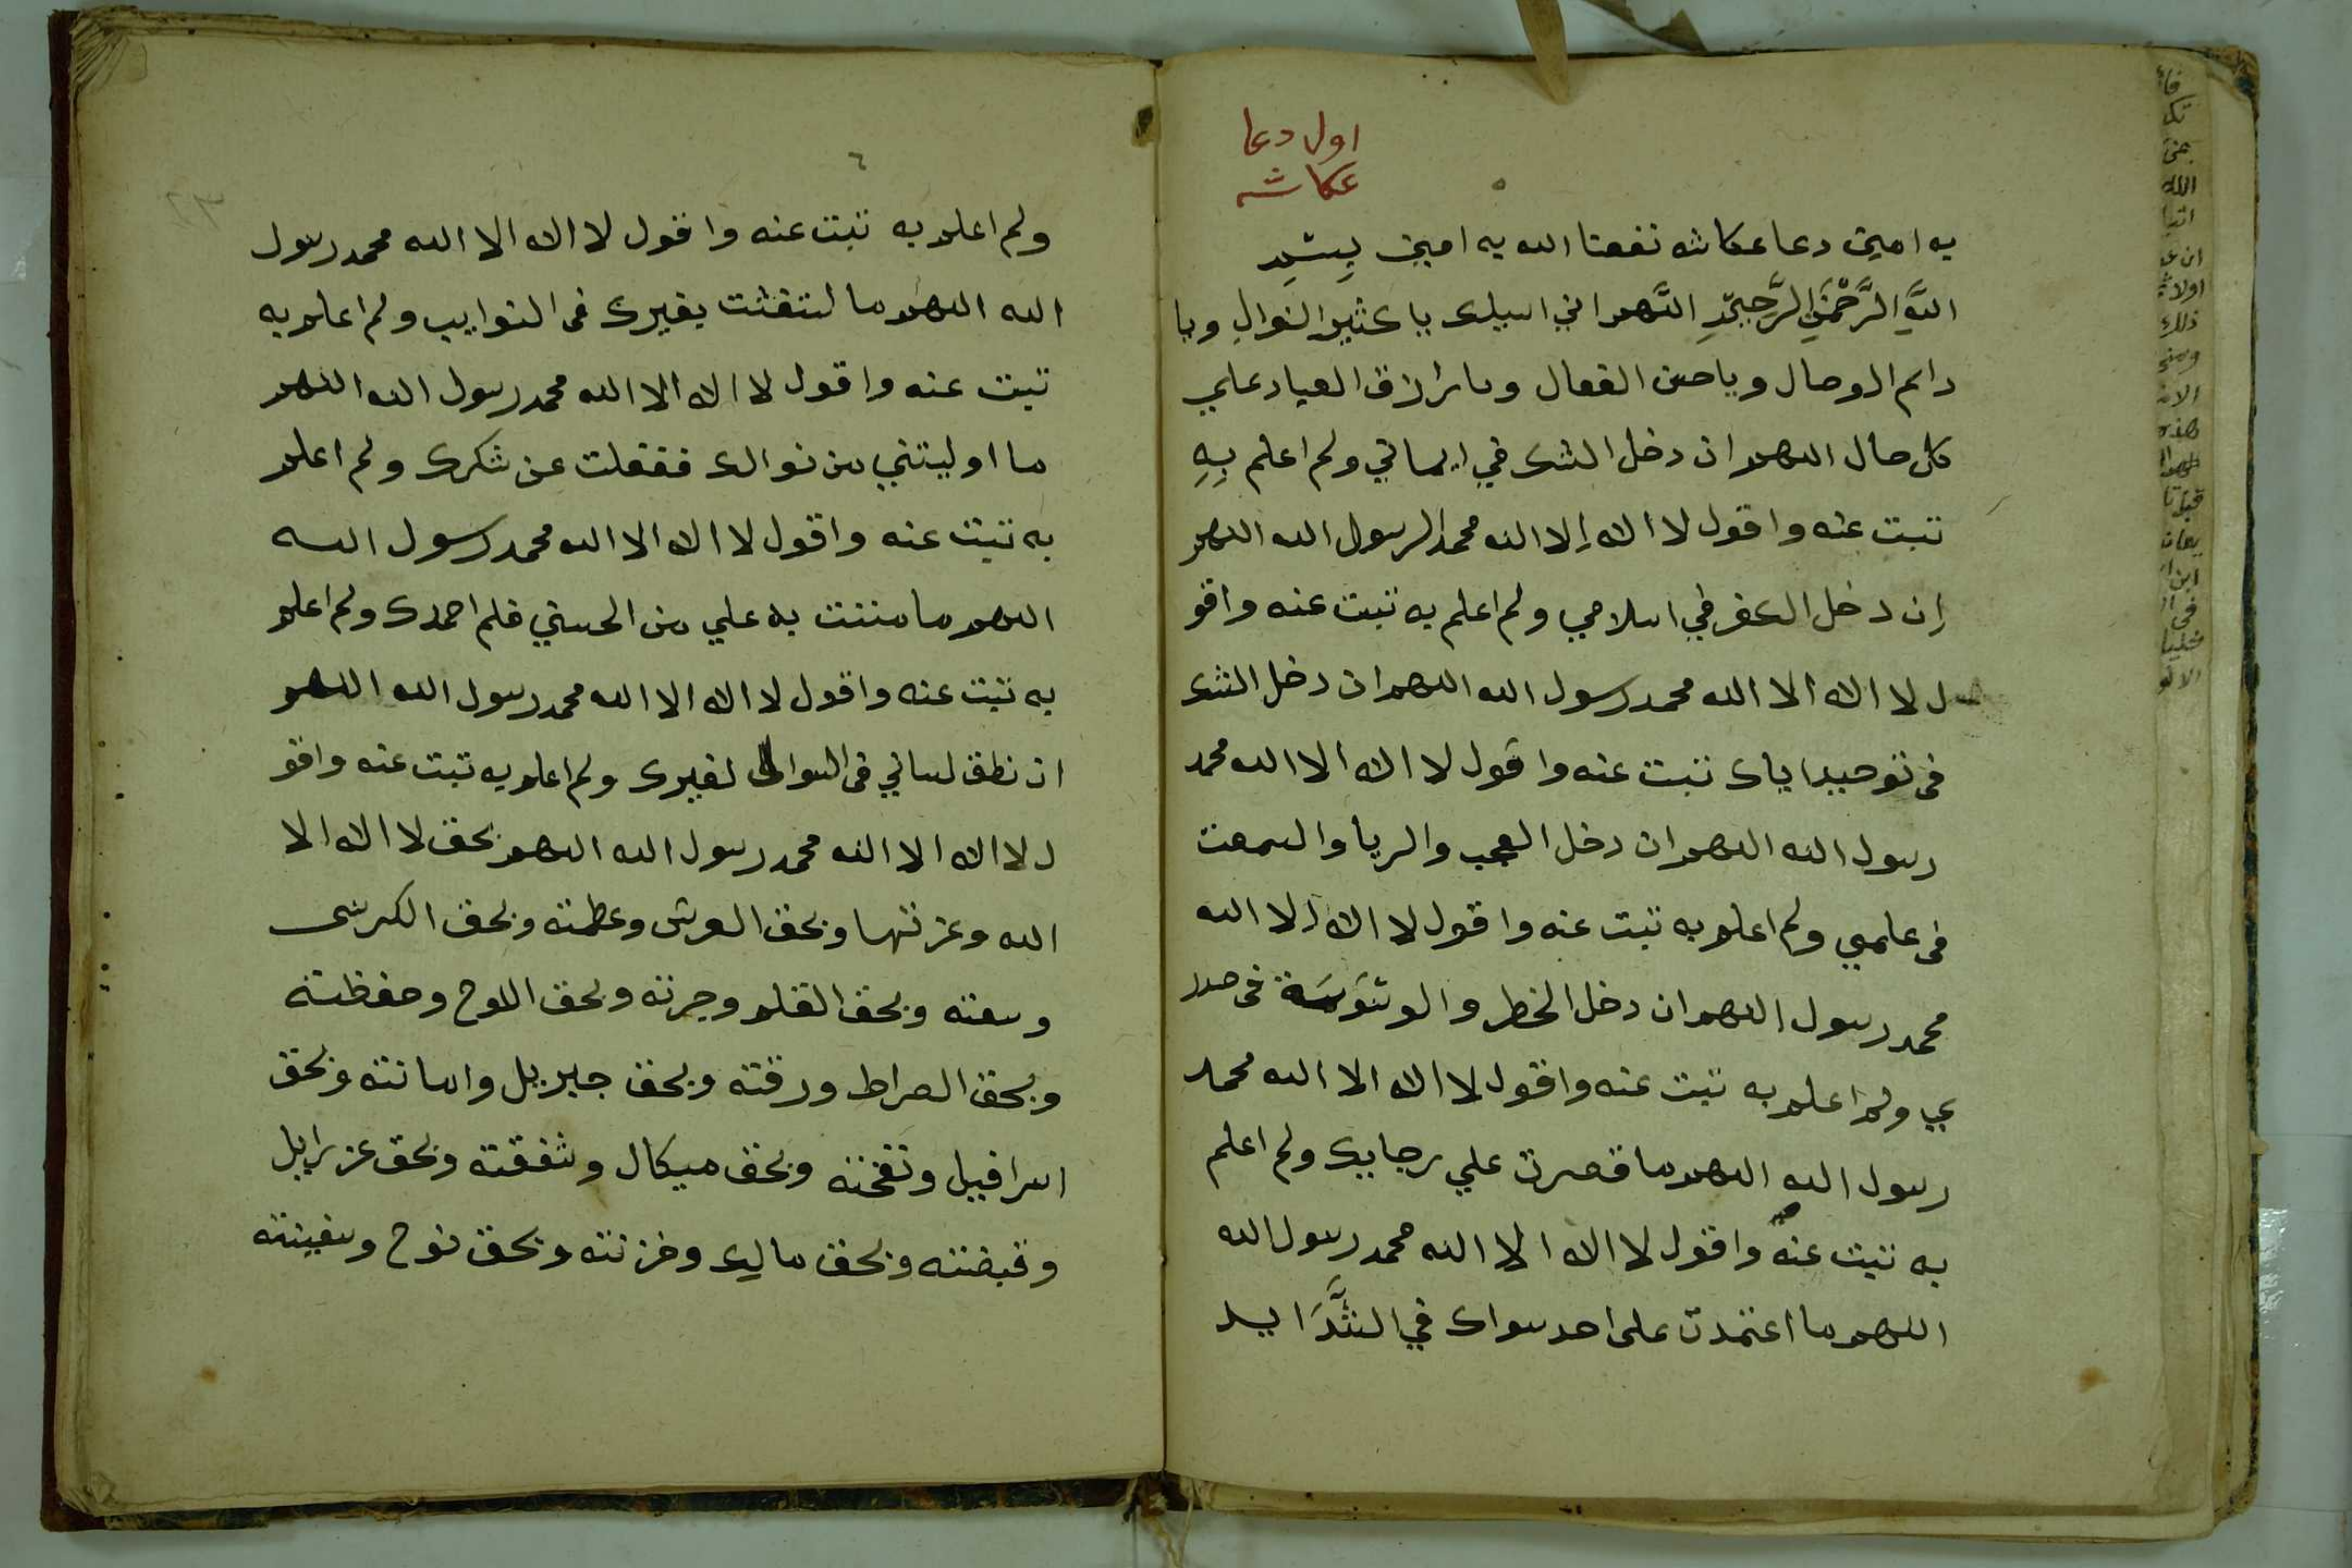 اول دعا
عكاشه
٥
به امين دعا عكاشه نفعنا الله به امين بِسْمِ
اللَّهِ الرَّحْمَنِ الرَّحِيمِ اللَّهم اني اسيلك يا كثير النوالِ ويا
دايم الوصال ويا حسن الفعال ويا رازق العباد علي
كل حال اللهم ان دخل الشك في ايماني ولم اعلم بِهِ
تبت عنه واقول لا اله إلا الله محمد الرسول الله اللهم
إن دخل الكفر في اسلامي ولم اعلم به تبت عنه واقو
ل لا اله الا الله محمد رسول الله اللهم ان دخل الشك
فى توحيد اياك تبت عنه واقول لا اله الا الله محمد
رسول الله اللهم ان دخل العجب والريا والسمعت
فى علمي ولم اعلم به تبت عنه واقول لا اله الا الله
محمد رسول اللهم ان دخل الخطر والوسْوَسَة فى صدر
ي ولم اعلم به تبت عنه واقول لا اله الا الله محمد
رسول الله اللهم ما قصرت علي رجايك ولم اعلم
به تبت عنه واقول لا اله الا الله محمد رسول الله
اللهم ما اعتمدت على احد سواك في الشَّدَايد
٦
٢٣
ولم اعلم به تبت عنه واقول لا اله الا الله محمد رسول
الله اللهم ما استغثت بغيرك فى النوايب ولم اعلم به
تبت عنه واقول لا اله الا الله محمد رسول الله اللهم
ما اوليتني من نوالك فغفلت عن شكرك ولم اعلم
به تبت عنه واقول لا اله الا الله محمد رسول الله
اللهم ما مننت به علي من الحسني فلم احمدك ولم اعلم
به تبت عنه واقول لا اله الا الله محمد رسول الله اللهم
ان نطق لساني فى السوال لغيرك ولم اعلم به تبت عنه واقو
ل لا اله الا الله محمد رسول الله اللهم بحق لا اله الا
الله وعزتها وبحق العرش وعظمته وبحق الكرسى
وسعته وبحق القلم وجرته وبحق اللوح وحفظته
وبحق الصراط ورقته وبحق جبريل وامانته وبحق
اسرافيل ونفخته وبحق ميكال وشفقته وبحق عزرايل
وقبضته وبحق مالك وخزنته وبحق نوح وسفينته